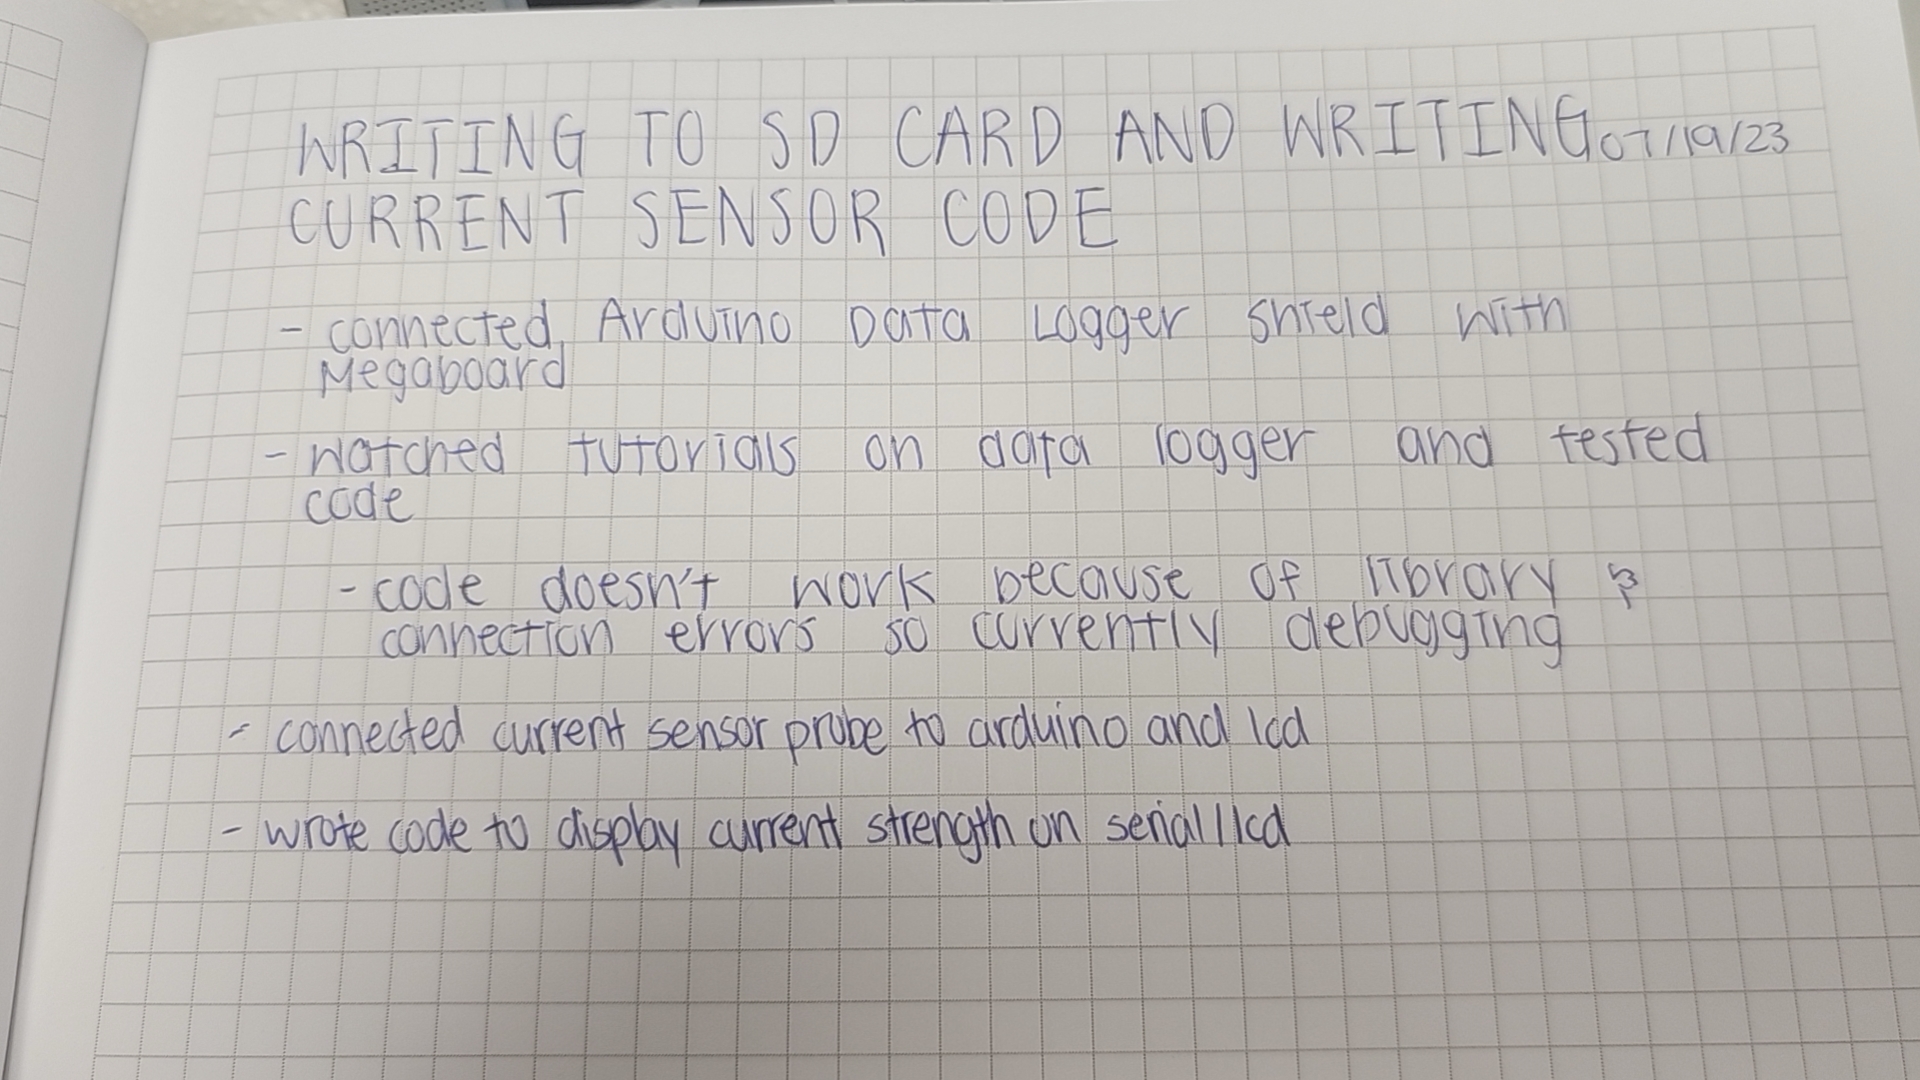 WRITING TO SD CARD AND WRITING 07/19/23
CURRENT SENSOR CODE
- connected Arduino Data Logger shield with
Megaboard
- watched tutorials on data logger and tested
code
- code doesn't work because of library &
connection errors so currently debugging
- connected current sensor probe to arduino and lcd
- wrote code to display current strength on serial/lcd